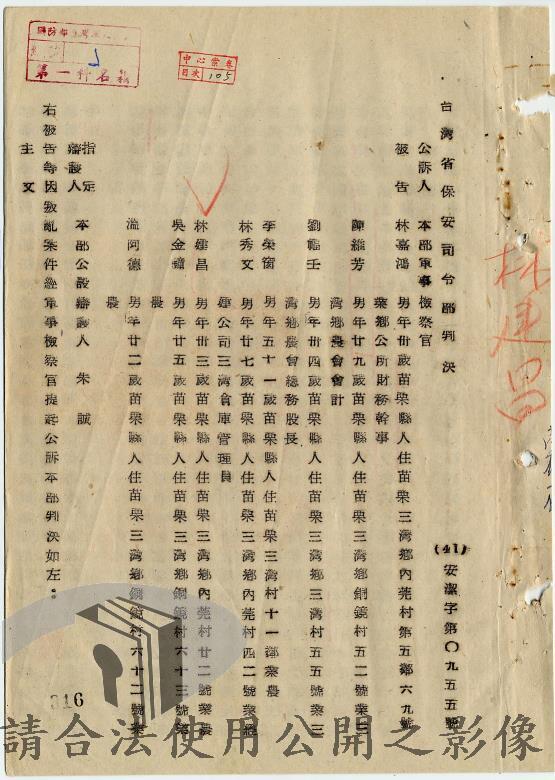 台灣省保安司令部判決
(41)安潔字第〇九五五號
公訴人 本部軍事檢察官
被告 林嘉鴻 男年卅歲苗栗縣人住苗栗三灣鄉內莞村第五鄰六九號
業鄉公所財務幹事
陳維芳 男年廿九歲苗栗縣人住苗栗三灣鄉銅鏡村五二號業三
灣鄉農會會計
劉 壬 男年卅四歲苗栗縣人住苗栗三灣鄉三灣村五五號業三
灣鄉農會總務股長
李榮 男年五十一歲苗栗縣人住苗栗三灣村十一鄰業農
林秀文 男年廿七歲苗栗縣人住苗栗三灣鄉內莞村四二號業
公司三灣倉庫管理員
林建昌 男年卅三歲苗栗縣人住苗栗三灣鄉內莞村廿二號業農
吳金 男年廿五歲苗栗縣人住苗栗三灣鄉銅鏡村六十三號業
農
溫阿德 男年廿二歲苗栗縣人住苗栗三灣鄉銅鏡村六十二號業
農
指定辯護人 本部公設辯護人 朱誠
右被告等因叛亂案件經軍事檢察官提起公訴本部判決如左：
主文
林建昌
第一科
中心案卷
目次 105
316
請合法使用公開之影像